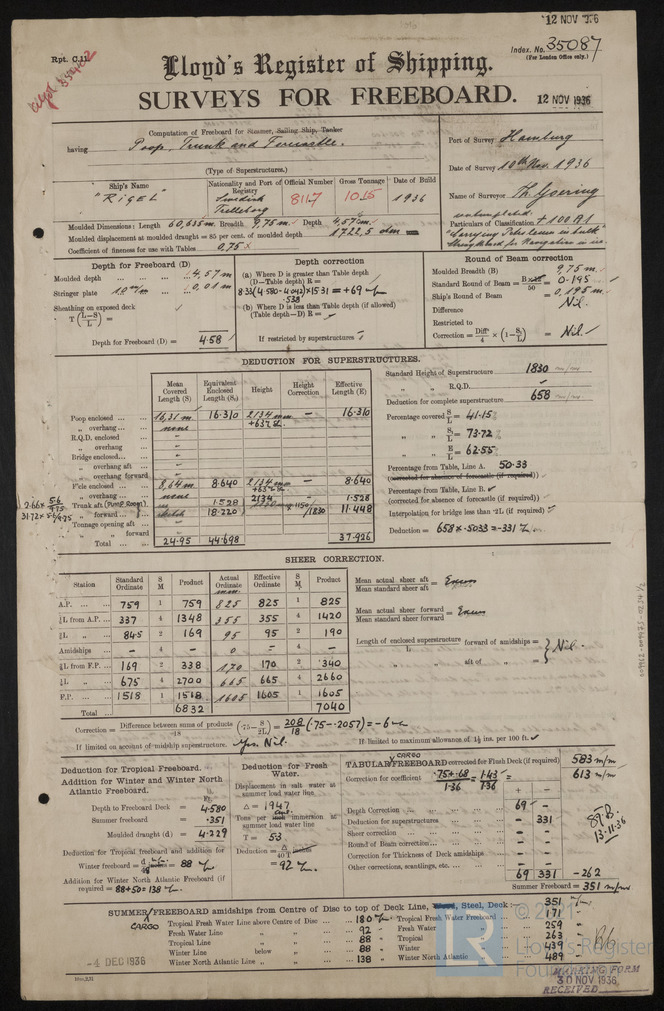 12 NOV 1936
Rpt. C.11.
Index. No. 35087
(For London Office only.)
Lloyd's Register of Shipping.
SURVEYS FOR FREEBOARD.
12 NOV 1936
Computation of Freeboard for Steamer, Sailing Ship, Tanker
having Poop, Trunk and Forecastle.
(Type of Superstructures.)
Port of Survey Hamburg
Date of Survey 10th Nov. 1936
Name of Surveyor Th. Goering
Particulars of Classification +100A1
"Carrying Petroleum in bulk"
Strengthened for Navigation in ice.
Ship's Name
"RIGEL"
Nationality and Port of Registry
Swedish
Trelleborg
Official Number
8117
Gross Tonnage
1015
Date of Build
1936
Moulded Dimensions: Length 60,635 m. Breadth 9,75 m. Depth 4,57 m.
Moulded displacement at moulded draught = 85 per cent. of moulded depth 1722,5 tons
Coefficient of fineness for use with Tables 0,75
Depth for Freeboard (D)
Moulded depth 4,57 m
Stringer plate 10 m/m 0,01 m
Sheathing on exposed deck
T (L-S / L) =
Depth for Freeboard (D) = 4.58
Depth correction
(a) Where D is greater than Table depth
(D—Table depth) R =
8.33 (4.580-4.042) × 1531 = +69
.538
(b) Where D is less than Table depth (if allowed)
(Table depth—D) R =
If restricted by superstructures
Round of Beam correction
Moulded Breadth (B) 9,75 m.
Standard Round of Beam = B / 50 = 0.195
Ship's Round of Beam = 0,195 m
Difference Nil.
Restricted to
Correction = Diff / 4 × (1-S/L) = Nil.
DEDUCTION FOR SUPERSTRUCTURES.
Mean Covered Length (S) Equivalent Enclosed Length (S₁) Height Height Correction Effective Length (E)
Poop enclosed 16,31 m 16.310 2134 mm — 16.310
„ overhang none
R.Q.D. enclosed
„ overhang
Bridge enclosed
„ overhang aft
„ overhang forward
F'cle enclosed 8,64 m 8.640 2134 mm — 8.640
„ overhang none
Trunk aft (PUMP ROOM) 1.528 2134 1.528
„ forward 18.220 1150/1830 11.448
Tonnage opening aft
„ „ forward
Total 24.95 44.698 37.926
Standard Height of Superstructure 1830
„ „ R.Q.D.
Deduction for complete superstructure 658
Percentage covered S/L = 41.15
„ „ S₁/L = 73.72
„ „ E/L = 62.55
Percentage from Table, Line A. 50.33
(corrected for absence of forecastle (if required))
Percentage from Table, Line B.
(corrected for absence of forecastle (if required))
Interpolation for bridge less than ·2L (if required)
Deduction = 658 × .5033 = -331
SHEER CORRECTION.
Station Standard Ordinate S M Product Actual Ordinate Effective Ordinate S M Product
A.P. 759 1 759 825 825 1 825
⅙L from A.P. 337 4 1348 355 355 4 1420
⅓L „ 84.5 2 169 95 95 2 190
Amidships — 4 — 0 — 4 —
⅓L from F.P. 169 2 338 170 170 2 340
⅙L „ 675 4 2700 665 665 4 2660
F.P. 1518 1 1518 1605 1605 1 1605
Total 6832 7040
Mean actual sheer aft / Mean standard sheer aft = Excess
Mean actual sheer forward / Mean standard sheer forward = Excess
Length of enclosed superstructure / L forward of amidships =
„ aft of „ = Nil.
Correction = Difference between sums of products / 18 (·75 - S/2L) = 208/18 (.75 - .2057) = -6
If limited on account of midship superstructure. Yes. Nil.
If limited to maximum allowance of 1½ ins. per 100 ft.
Deduction for Tropical Freeboard.
Addition for Winter and Winter North Atlantic Freeboard.
Depth to Freeboard Deck = 4.580
Summer freeboard = .351
Moulded draught (d) = 4.229
Deduction for Tropical freeboard and addition for
Winter freeboard = 88
Addition for Winter North Atlantic Freeboard (if
required = 88+50=138
Deduction for Fresh Water.
Displacement in salt water at summer load water line
Δ = 1947
Tons per cm immersion at summer load water line
T = 53
Deduction = Δ / 40 T
= 92
TABULAR CARGO FREEBOARD corrected for Flush Deck (if required) 583 m/m
Correction for coefficients .75+.68 / 1.36 = 1.43 / 1.36 = 613 m/m
+ -
Depth Correction 69 —
Deduction for superstructures — 331
Sheer correction — —
Round of Beam correction — —
Correction for Thickness of Deck amidships — —
Other corrections, scantlings, etc. — —
69 331 -262
Summer Freeboard = 351 m/m
13.11.36
SUMMER CARGO FREEBOARD amidships from Centre of Disc to top of Deck Line, Wood, Steel, Deck :— 351
Tropical Fresh Water Line above Centre of Disc 180 Tropical Fresh Water Freeboard 171
Fresh Water Line „ „ 92 Fresh Water „ 259
Tropical Line „ „ 88 Tropical „ 263
Winter Line below „ 88 Winter „ 439
Winter North Atlantic Line „ „ 138 Winter North Atlantic „ 489
-4 DEC 1936
© 2021
LR
Lloyd's Register
Foundation
MARKING FORM
30 NOV 1936
RECEIVED